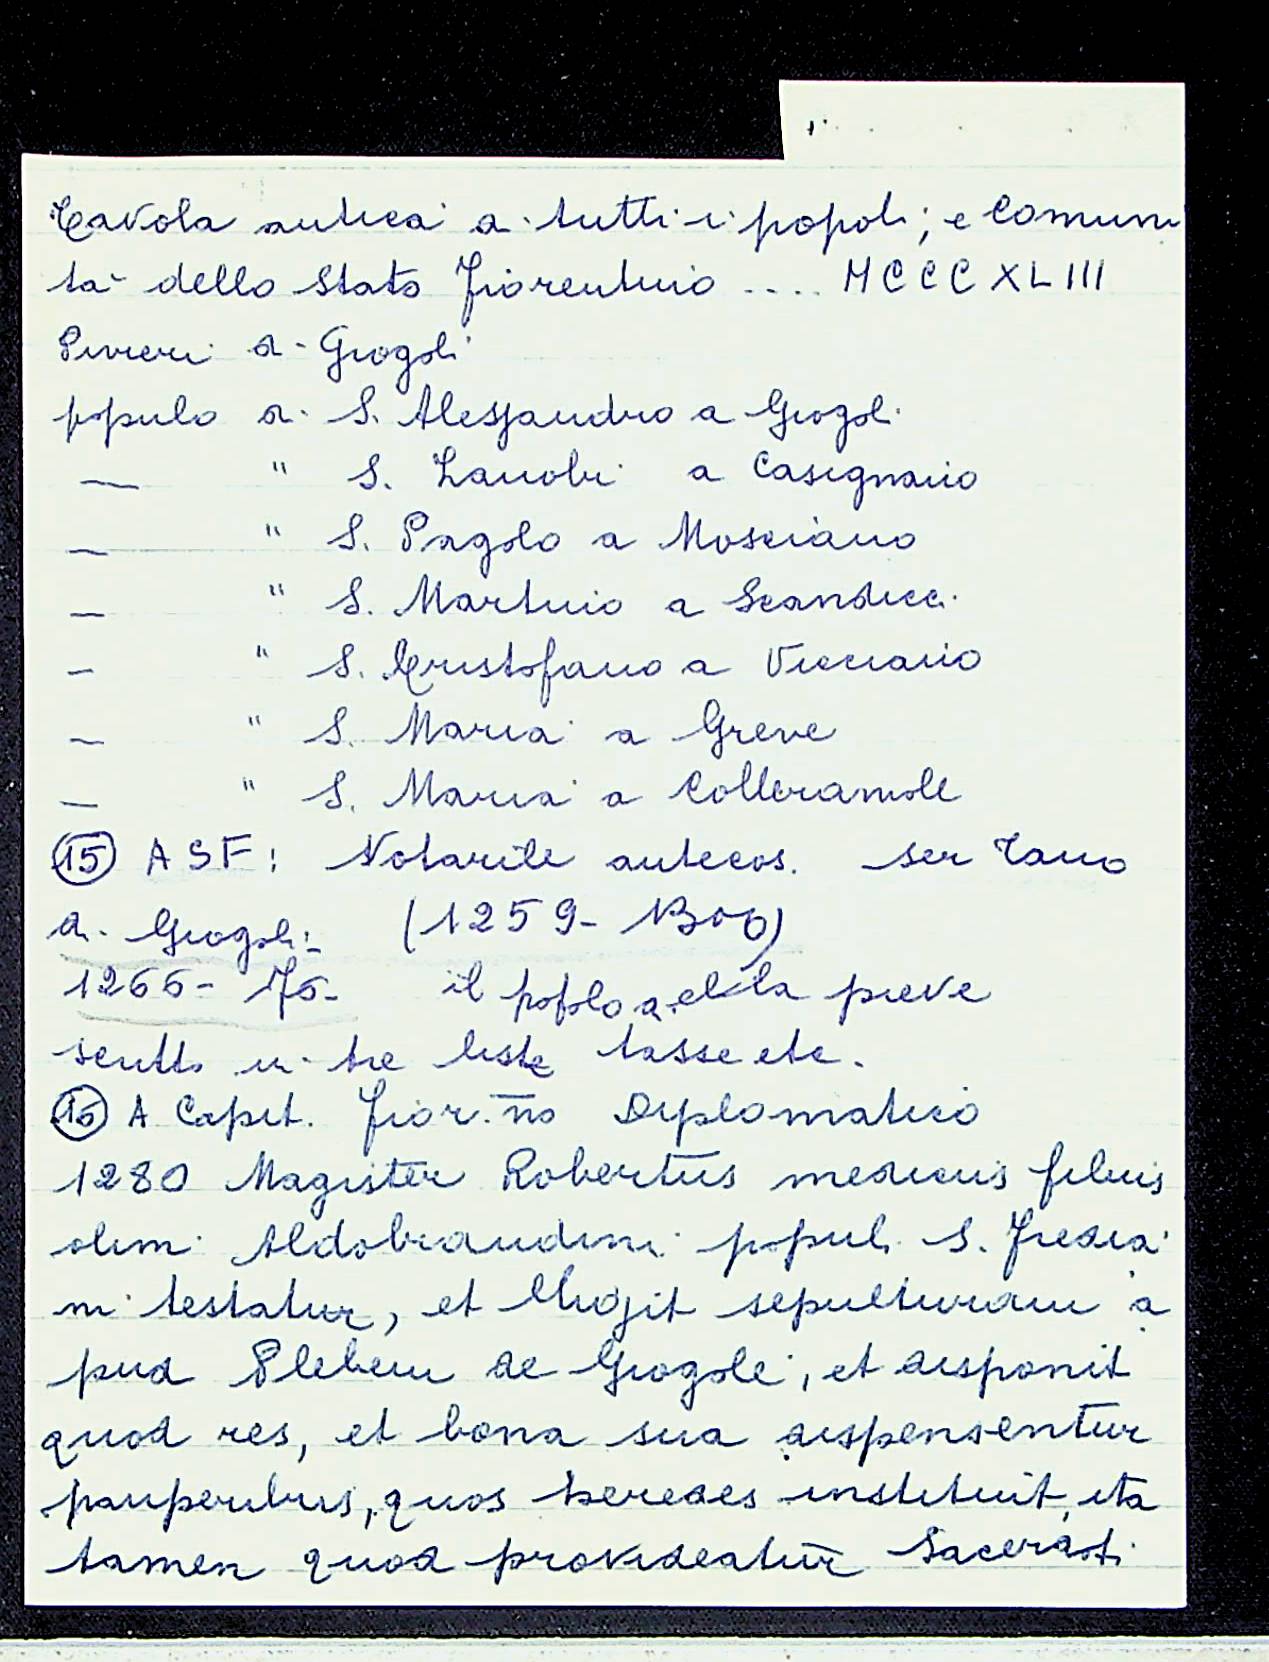 Tavola antica di tutti i popoli; e Comuni
tà dello Stato Fiorentino .... MCCCXLIII
Pivieri di Giogoli
popolo di S. Alessandro a Giogoli
— " S. Zanobi a Casignano
— " S. Pagolo a Mosciano
— " S. Martino a Scandicci
— " S. Cristofano a Viciano
— " S. Maria a Greve
— " S. Maria a Colleramole
(15) ASF: Notarile antecos. ser Tano
di Giogoli (1259- 1300)
1266- 75- il popolo della pieve
scritto in tre liste tasse etc.
(16) A Capit. Fior.no Diplomatico
1280 Magister Robertus medicus filius
olim Aldobrandini populi S. Fridia
ni testatur, et eligit sepulturam a
pud Plebem de Giogole, et disponit
quod res, et bona sua dispensentur
pauperibus, quos heredes instituit, ita
tamen quod provideatur Sacerdoti